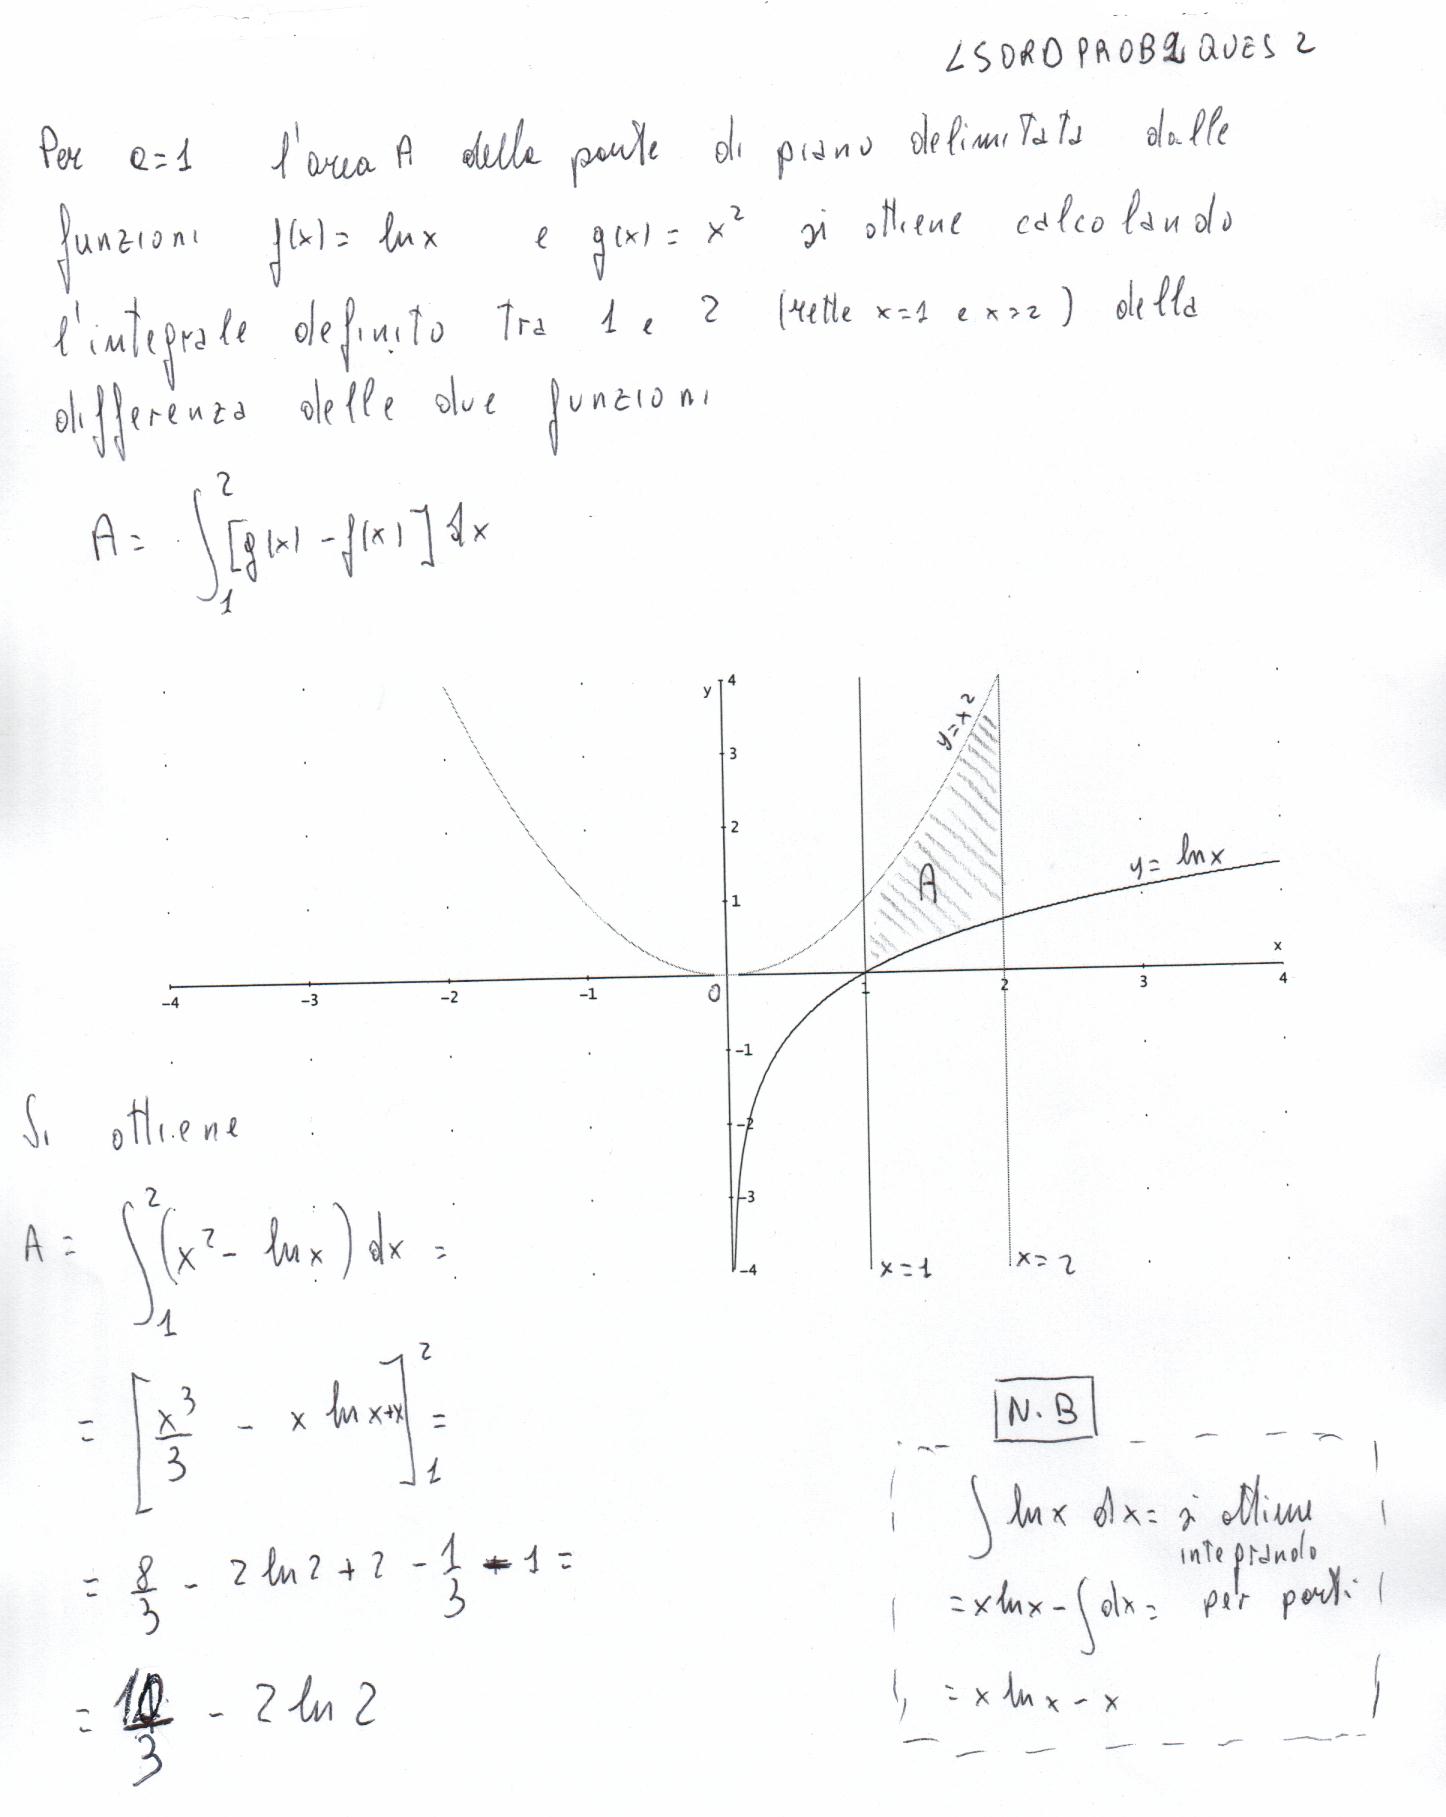 LSORD PROB2 QUES 2
Per a=1 l'area A della parte di piano delimitata dalle
funzioni f(x) = ln x e g(x) = x² si ottiene calcolando
l'integrale definito tra 1 e 2 (rette x=1 e x=2) della
differenza delle due funzioni
A = ∫₁² [g(x) - f(x)] dx
y 4
3
2
1
-1
-2
-3
-4
-4 -3 -2 -1 O 1 2 3 4
x
y=x²
A
y= ln x
x=1
x=2
Si ottiene
A = ∫₁² (x² - ln x) dx =
= [x³/3 - x ln x+x]₁² =
= 8/3 - 2 ln 2 + 2 - 1/3 - 1 =
= 10/3 - 2 ln 2
N.B
∫ ln x dx = si ottiene
integrando
= x ln x - ∫ dx = per parti
= x ln x - x